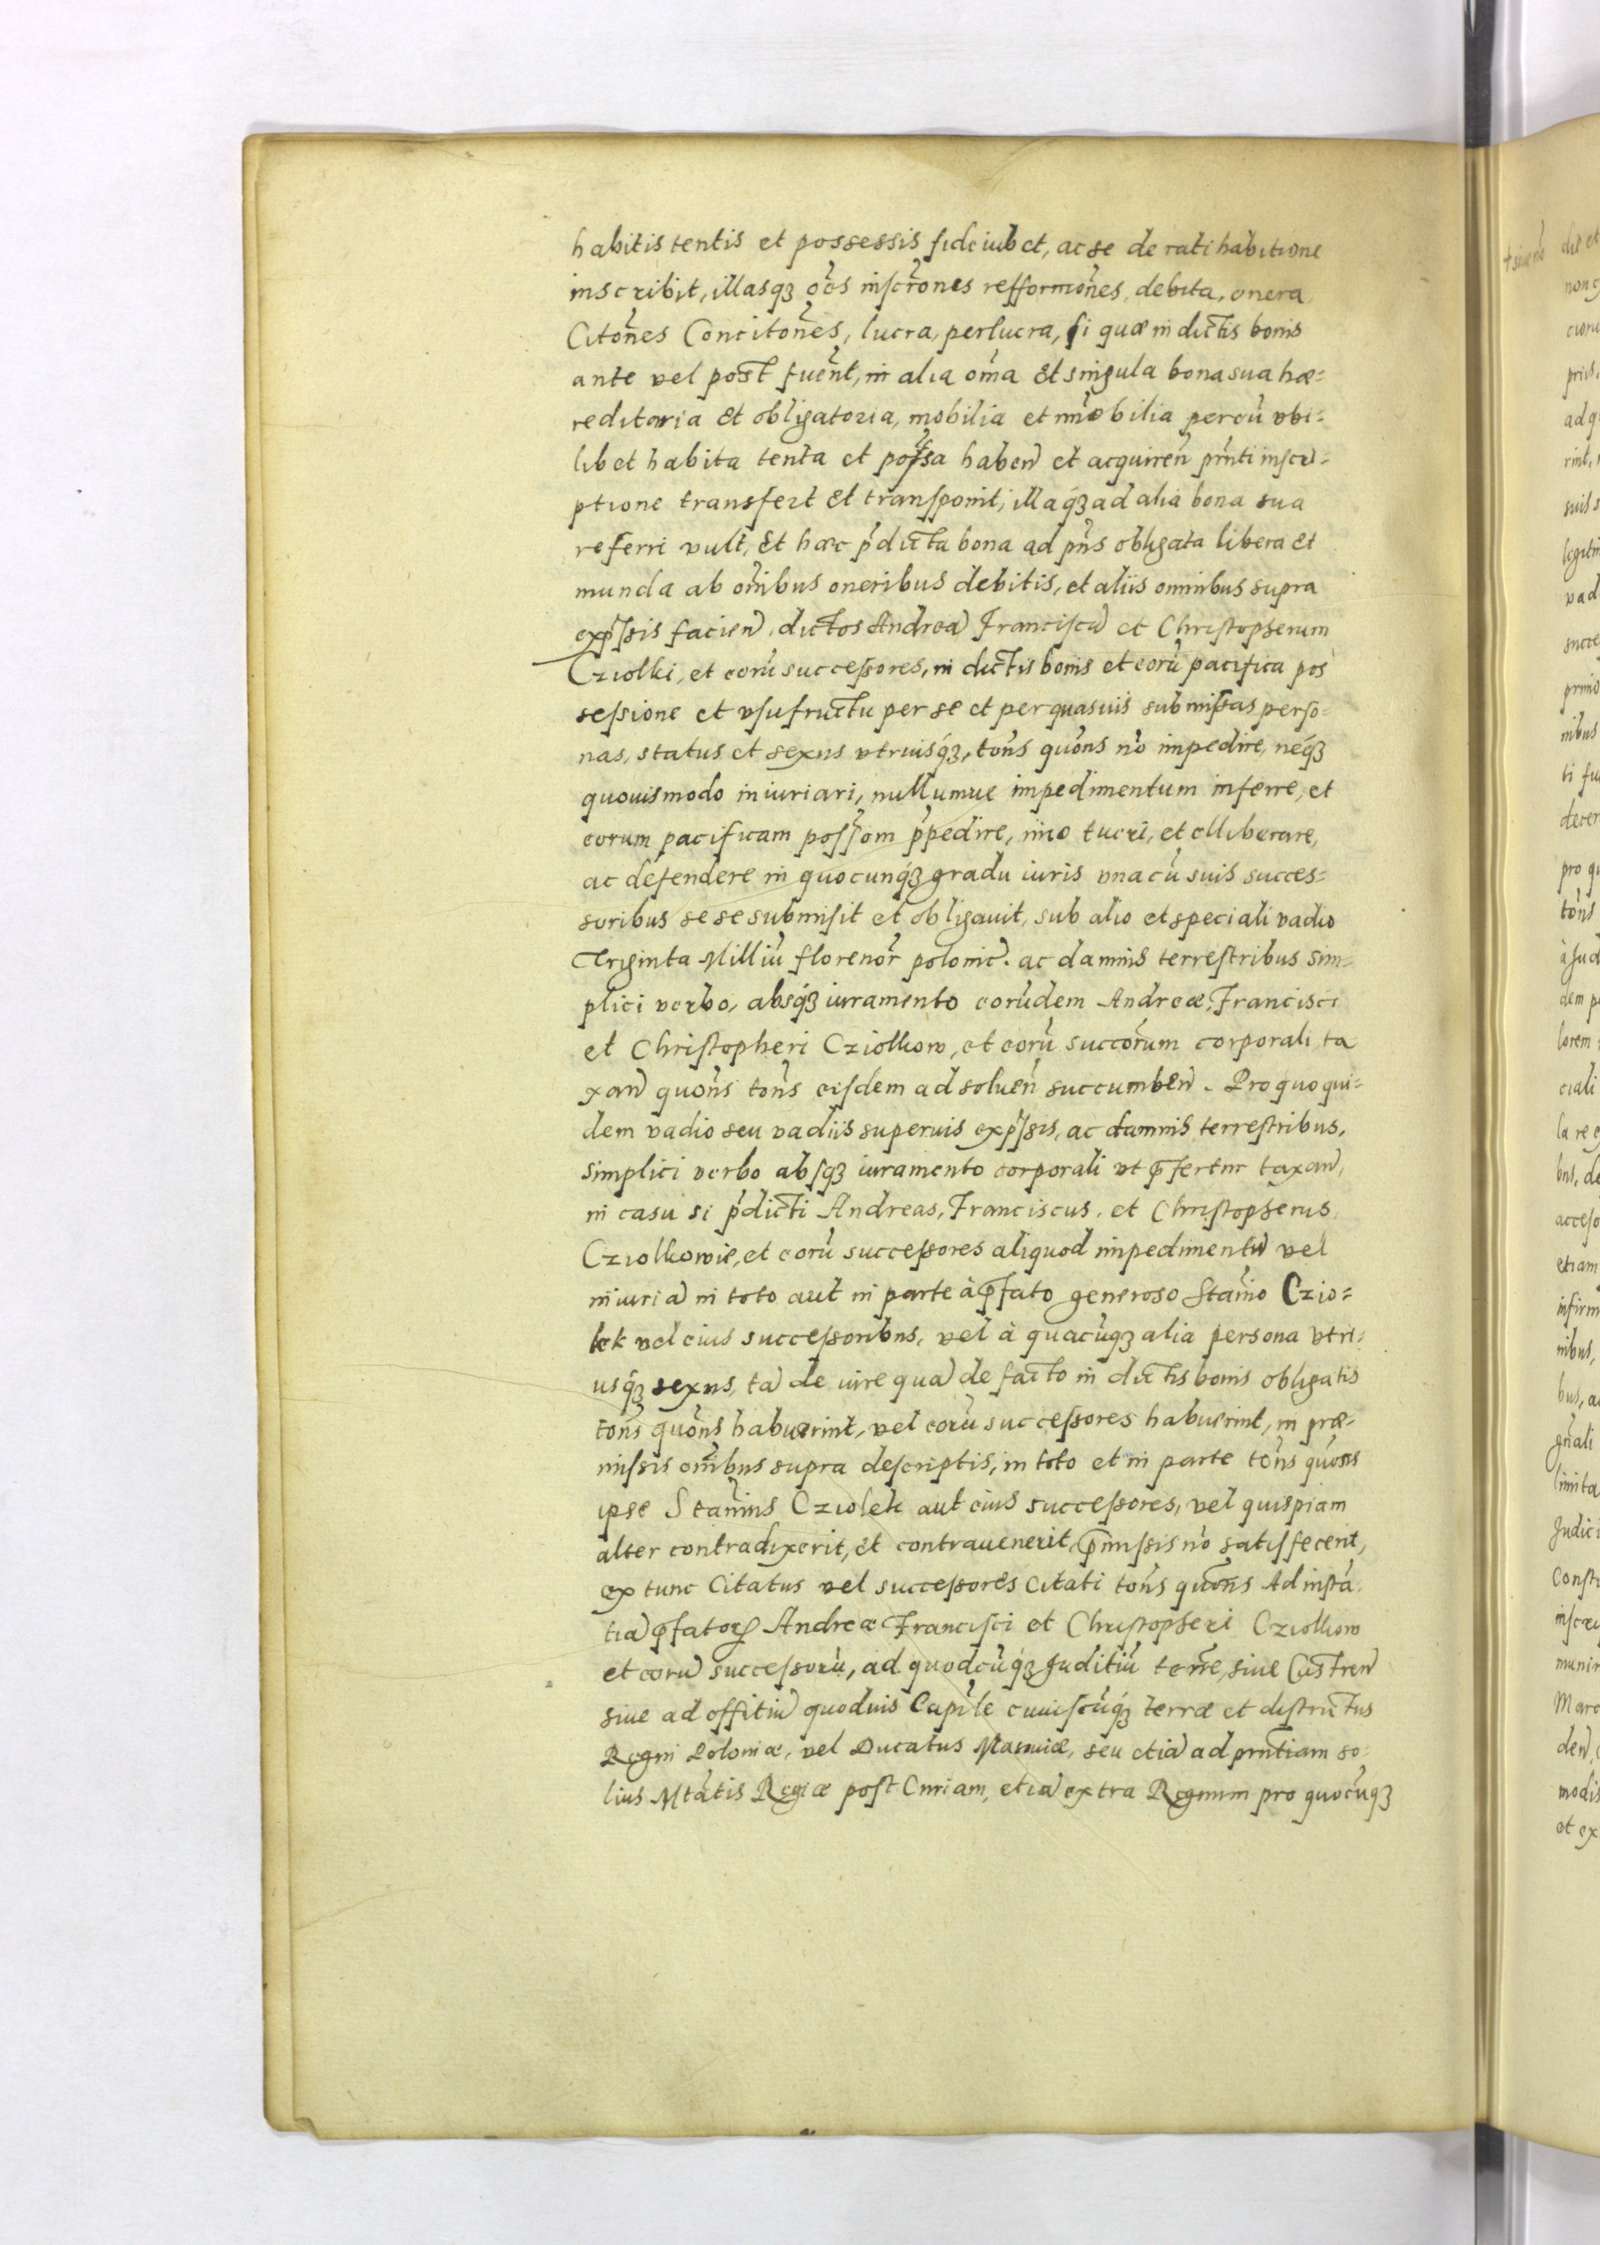 habitis tentis et possessis fideiubet, ac se de ratihabitione
inscribit, illasqꝫ oẽs inscrõnes refformõnes, debita, onera
Citõnes Concitõnes, lucra, perlucra, si quæ in dictis bonis
ante vel post fuẽnt, in alia oma Et singula bona sua hæ=
reditaria Et obligatoria, mobilia et im̃obilia percũ vbi=
libet habita tenta et possa haben̄ et acquiren̄ pn̄ti inscri=
ptione transfert Et transponit, illaqꝫ ad alia bona sua
referri vult, Et hæc p̃dicta bona ad pn̄s obligata libera Et
munda ab om̃ibus oneribus debitis, et aliis omnibus supra
exp̃ssis facien̄, dictos Andreã Franciscũ et Christopherum
Cziolki, et eorũ successores, in dictis bonis et eorũ pacifica pos
sessione et vsufructu per se et per quasuis submissas perso=
nas, status et sexus vtriusqꝫ, tõns quõns nõ impedire, neqꝫ
quouismodo iniuriari, nullumue impedimentum inferre, et
eorum pacificam possõm p̃pedire, im̃o tueri, et elliberare,
ac defendere in quocunqꝫ gradu iuris vna cũ suis succes=
soribus se se submisit et obligauit, sub alio et speciali vadio
Triginta Milliũ florenor̃ polonic̃. ac damnis terrestribus sim=
plici verbo, absqꝫ iuramento eorũdem Andreæ, Francisci
et Christopheri Cziolkow, et eorũ succõrum corporali ta
xan̄ quõns tõns eisdem ad soluen̄ succumben̄. Pro quo qui=
dem vadio seu vadiis superuis exp̃ssis, ac damnis terrestribus,
simplici verbo absqꝫ iuramento corporali vt p̃fertur taxan̄,
in casu si p̃dicti Andreas, Franciscus, et Christopherus
Cziolkowie, et eorũ successores aliquod impedimentũ vel
iniuriã in toto aut in parte à p̃fato generoso Stan̄io Czio=
lek vel eius successoribus, vel à quacũqꝫ alia persona vtri=
usqꝫ sexus, tã de iure quã de facto in dictis bonis obligatis
tõns quõns habuerint, vel eorũ successores habuerint, in præ=
missis om̃ibus supra descriptis, in toto et in parte tõns quõns
ipse Stan̄ius Cziolek aut eius successores, vel quispiam
alter contradixerit, et contrauenerit, p̃missis nõ satisfecerit,
ex tunc Citatus vel successores citati tõns quõns Ad instã=
tiã p̃fatorꝫ Andreæ Francisci et Christopheri Cziolkow
et eorũ successorũ, ad quodcũqꝫ Juditiũ terre, siue Castren̄
siue ad offitiũ quoduis Capĩle cuiuscũqꝫ terræ et districtus
Regni Poloniæ, vel Ducatus Masouiæ, seu etiã ad pn̄tiam so=
lius Mtãtis Regiæ post Curiam, etiã extra Regnum pro quocũqꝫ